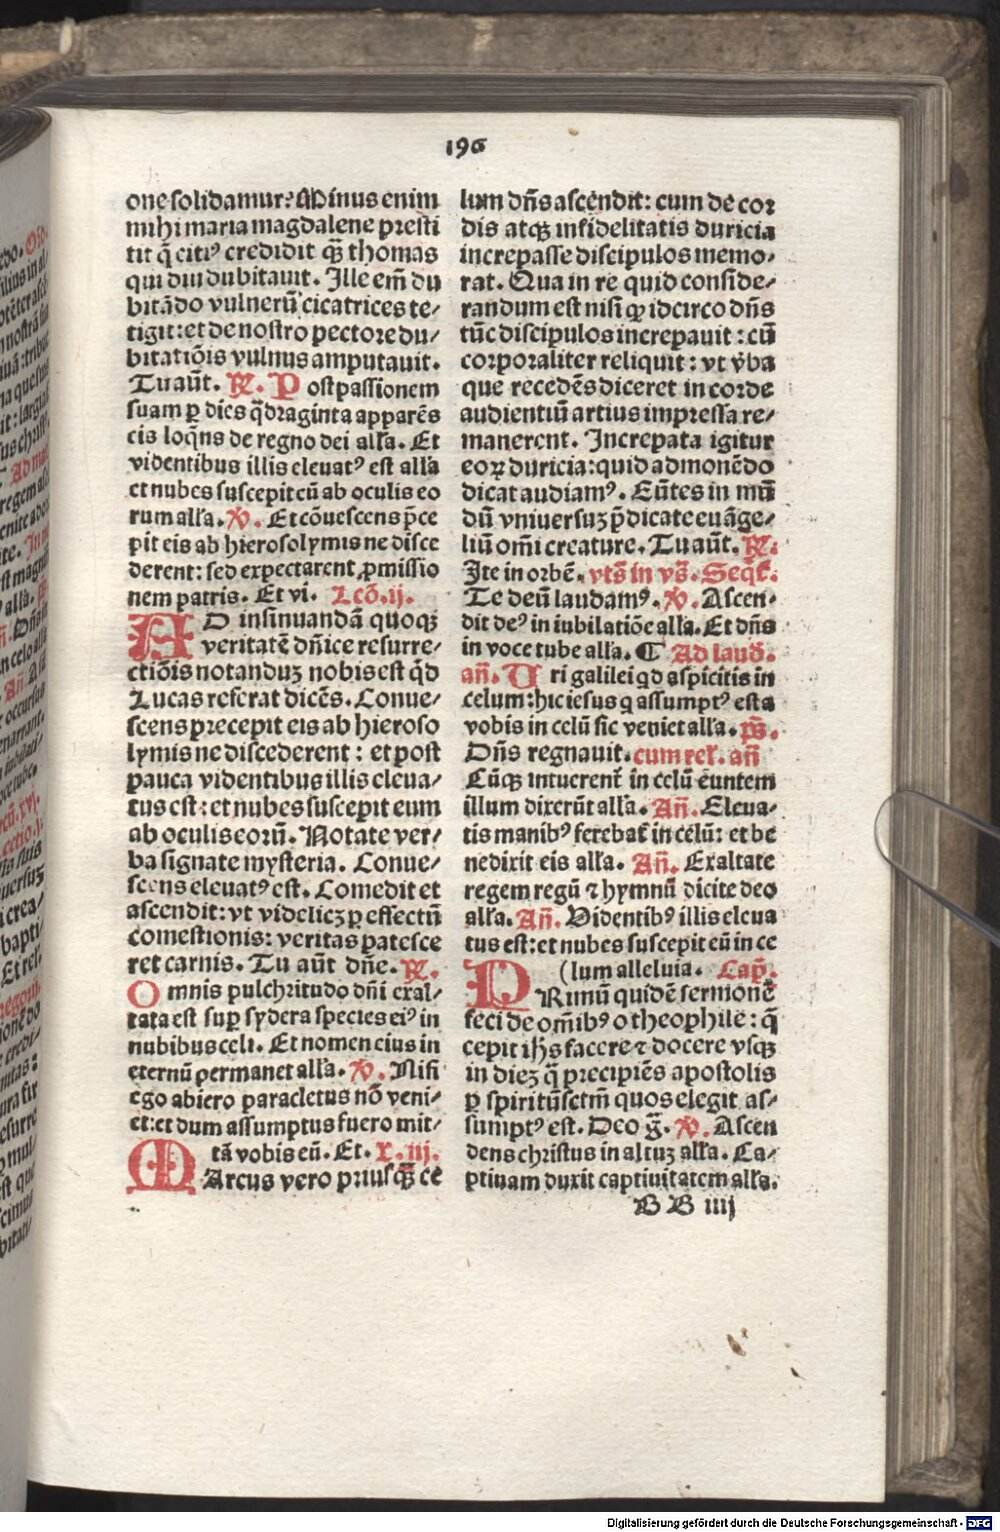 196
one solidamur? Minus enim
mihi maria magdalene presti
tit q̄ citiꝰ credidit q̄ȝ thomas
qui diu dubitauit. Ille em̄ du
bitãdo vulnerũ cicatrices te/
tigit: et de nostro pectore du/
bitatiõis vulnus amputauit.
Tu aũt. ꝶ. Post passionem
suam ꝑ dies q̃draginta apparẽs
eis loq̃ns de regno dei all'a. Et
videntibus illis eleuatꝰ est all'a
et nubes suscepit eũ ab oculis eo
rum all'a. ℣. Et cõuescens p̃ce
pit eis ab hierosolymis ne disce
derent: sed expectarent ꝓmissio
nem patris. Et vi. Lcõ.ij.
AD insinuandã quoqȝ
veritatẽ dñice resurre/
ctiõis notanduȝ nobis est q̃d
Lucas referat dicẽs. Conue/
scens precepit eis ab hieroso
lymis ne discederent: et post
pauca videntibus illis eleua/
tus est: et nubes suscepit eum
ab oculis eorũ. Notate ver/
ba signate mysteria. Conue/
scens eleuatꝰ est. Comedit et
ascendit: vt videlicȝ ꝑ effectũ
comestionis: veritas patesce
ret carnis. Tu aũt dñe. ꝶ.
Omnis pulchritudo dñi exal/
tata est suꝑ sydera species eiꝰ in
nubibus celi. Et nomen eius in
eternũ permanet all'a. ℣. Nisi
ego abiero paracletus nõ veni/
et: et dum assumptus fuero mit/
tã vobis eũ. Et. L. iij.
MArcus vero priusq̄ȝ ce
lum dñs ascendit: cum de cor
dis atqȝ infidelitatis duricia
increpasse discipulos memo/
rat. Qua in re quid conside/
randum est nisi ꝙ idcirco dñs
tũc discipulos increpauit: cũ
corporaliter reliquit: vt v̓ba
que recedẽs diceret in corde
audientiũ artius impressa re/
manerent. Increpata igitur
eoꝝ duricia: quid admonẽdo
dicat audiamꝰ. Eũtes in mũ
dũ vniuersuȝ p̃dicate euãge/
liũ omi creature. Tu aũt. ꝶ.
Ite in orbẽ. vts̃ in vs̃. Seq̃t.
Te deũ laudamꝰ. ℣. Ascen/
dit deꝰ in iubilatiõe all'a. Et dñs
in voce tube all'a. ¶ Ad laud.
añ. Uiri galilei qd aspicitis in
celum: hic iesus q assumptꝰ est a
vobis in celũ sic veniet all'a. ps̃.
Dñs regnauit. cum rel. añ
Cũqȝ intuerent̃ in celũ euntem
illum dixerũt all'a. Añ. Eleua/
tis manibꝰ ferebat̃ in celũ: et be
nedixit eis all'a. Añ. Exaltate
regem regũ ⁊ hymnũ dicite deo
all'a. Añ. Videntibꝰ illis eleua
tus est: et nubes suscepit eũ in ce
(lum alleluia. Cap̃.
PRimũ quidẽ sermonẽ
feci de om̃ibꝰ o theophile: q̃
cepit ihs facere ⁊ docere vsqȝ
in dieȝ q̃ precipiẽs apostolis
ꝑ spiritũsctm̃ quos elegit as/
sumptꝰ est. Deo g̃. ℣. Ascen
dens christus in altuȝ all'a. Ca/
ptiuam duxit captiuitatem all'a.
BB iiij
Digitalisierung gefördert durch die Deutsche Forschungsgemeinschaft - DFG